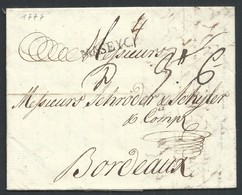 1777
4
MASEYCK
Messieurs
Messieurs Schröder & Schÿler
& Comp.
Bordeaux